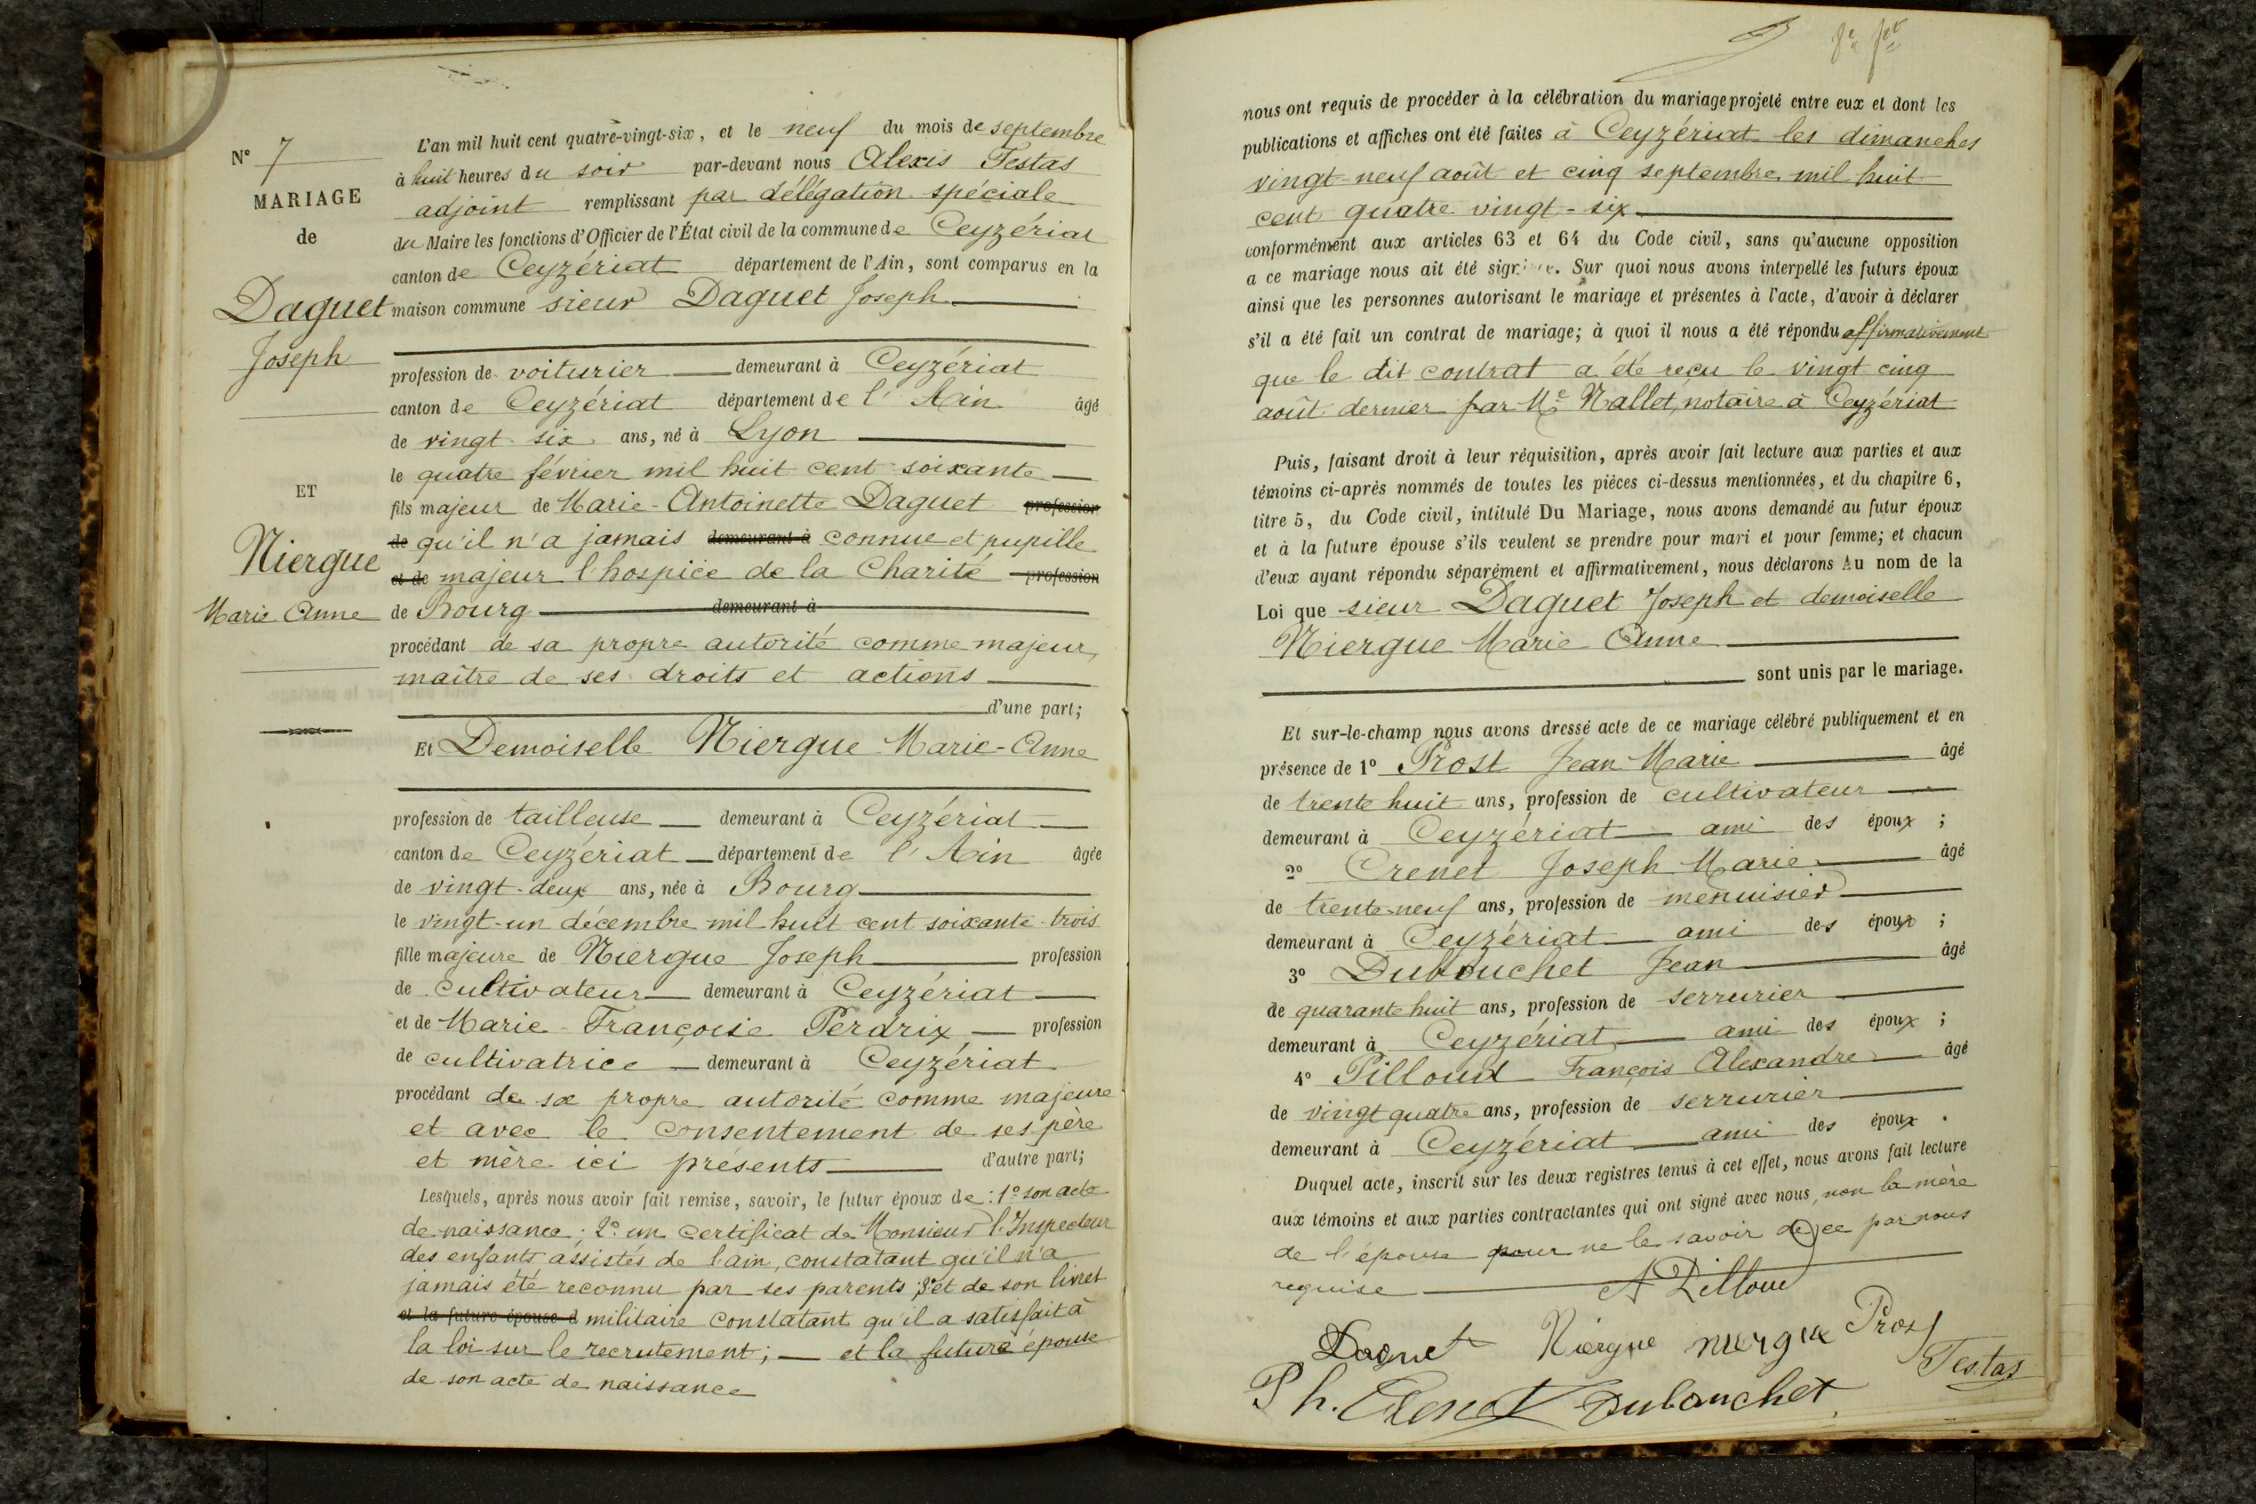 N° 7
MARIAGE
de
Daguet
Joseph
ET
Niergue
Marie Anne
L'an mil huit cent quatre-vingt-six, et le neuf du mois de septembre
à huit heures du soir par-devant nous Alexis Testas
adjoint remplissant par délégation spéciale
du Maire les fonctions d'Officier de l'État civil de la commune de Ceyzériat
canton de Ceyzériat département de l'Ain, sont comparus en la
maison commune sieur Daguet Joseph
profession de voiturier demeurant à Ceyzériat
canton de Ceyzériat département de l'Ain âgé
de vingt-six ans, né à Lyon
le quatre février mil huit cent soixante
fils majeur de Marie-Antoinette Daguet profession
de qu'il n'a jamais demeurant à connue et pupille
et de majeur l'hospice de la Charité profession
de Bourg demeurant à
procédant de sa propre autorité comme majeur,
maître de ses droits et actions
d'une part;
Et Demoiselle Niergue Marie-Anne
profession de tailleuse demeurant à Ceyzériat
canton de Ceyzériat département de l'Ain âgée
de vingt-deux ans, née à Bourg
le vingt-un décembre mil huit cent soixante-trois
fille majeure de Niergue Joseph profession
de cultivateur demeurant à Ceyzériat
et de Marie-Françoise Perdrix profession
de cultivatrice demeurant à Ceyzériat
procédant de sa propre autorité comme majeure
et avec le consentement de ses père
et mère ici présents d'autre part;
Lesquels, après nous avoir fait remise, savoir, le futur époux de : 1° son acte
de naissance; 2° un certificat de Monsieur l'Inspecteur
des enfants assistés de l'ain, constatant qu'il n'a
jamais été reconnu par ses parents; 3° et de son livret
et la future épouse d militaire constatant qu'il a satisfait à
la loi sur le recrutement; — et la future épouse
de son acte de naissance
nous ont requis de procéder à la célébration du mariage projeté entre eux et dont les
publications et affiches ont été faites à Ceyzériat les dimanches
vingt-neuf août et cinq septembre mil huit
cent quatre vingt-six
conformément aux articles 63 et 64 du Code civil, sans qu'aucune opposition
a ce mariage nous ait été signifiée. Sur quoi nous avons interpellé les futurs époux
ainsi que les personnes autorisant le mariage et présentes à l'acte, d'avoir à déclarer
s'il a été fait un contrat de mariage; à quoi il nous a été répondu affirmativement
que le dit contrat a été reçu le vingt cinq
août dernier par Me Nallet, notaire à Ceyzériat
Puis, faisant droit à leur réquisition, après avoir fait lecture aux parties et aux
témoins ci-après nommés de toutes les pièces ci-dessus mentionnées, et du chapitre 6,
titre 5, du Code civil, intitulé Du Mariage, nous avons demandé au futur époux
et à la future épouse s'ils veulent se prendre pour mari et pour femme; et chacun
d'eux ayant répondu séparément et affirmativement, nous déclarons Au nom de la
Loi que sieur Daguet Joseph et demoiselle
Niergue Marie Anne
sont unis par le mariage.
Et sur-le-champ nous avons dressé acte de ce mariage célébré publiquement et en
présence de 1° Prost Jean-Marie âgé
de trente huit ans, profession de cultivateur
demeurant à Ceyzériat ami des époux;
2° Crenet Joseph Marie âgé
de trente-neuf ans, profession de menuisier
demeurant à Ceyzériat ami des époux;
3° Dubouchet Jean âgé
de quarante huit ans, profession de serrurier
demeurant à Ceyzériat ami des époux;
4° Pilloud François Alexandre âgé
de vingt quatre ans, profession de serrurier
demeurant à Ceyzériat ami des époux.
Duquel acte, inscrit sur les deux registres tenus à cet effet, nous avons fait lecture
aux témoins et aux parties contractantes qui ont signé avec nous, non la mère
de l'épouse pour ne le savoir de ce par nous
requise A Pilloud
Daguet Niergue niergue Prost
Testas
Ph. Crenet Dubouchet